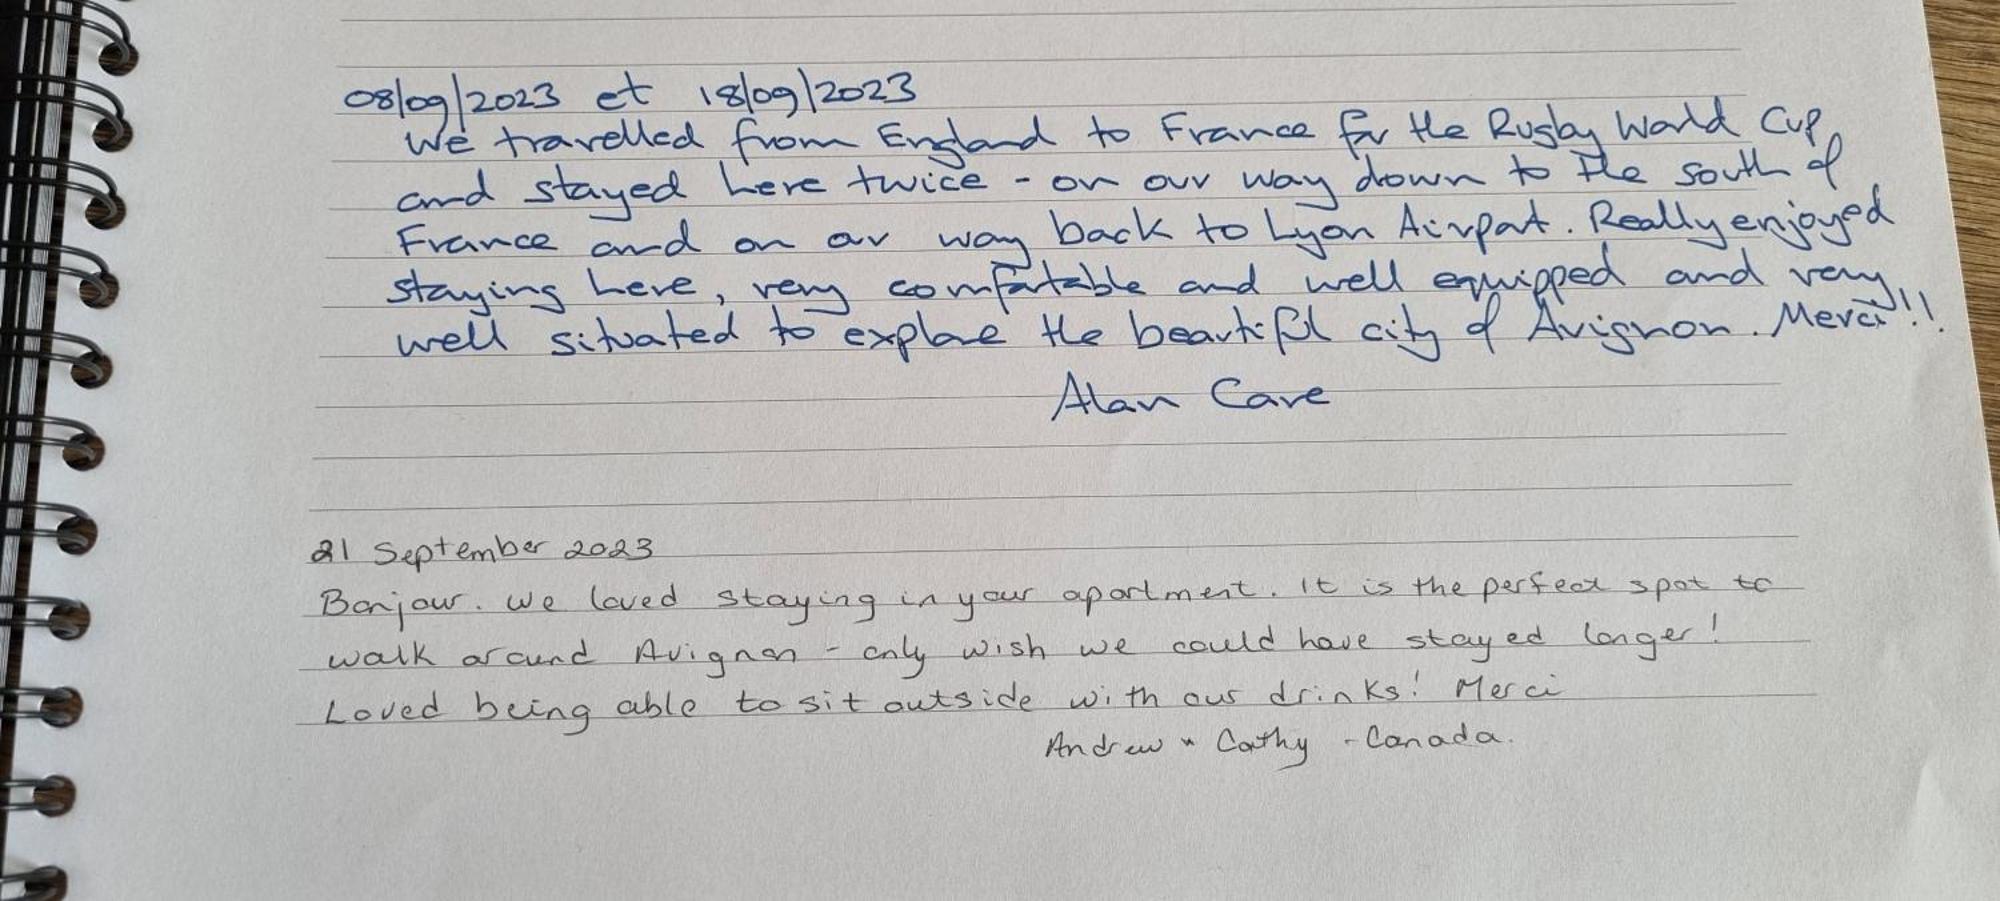 08/09/2023 et 18/09/2023
We travelled from England to France for the Rugby World Cup,
and stayed here twice - on our way down to the south of
France and on our way back to Lyon Airport. Really enjoyed
staying here, very comfortable and well equipped and very
well situated to explore the beautiful city of Avignon. Merci!!
Alan Cave
21 September 2023
Bonjour. We loved staying in your apartment. It is the perfect spot to
walk around Avignon - only wish we could have stayed longer!
Loved being able to sit outside with our drinks! Merci
Andrew & Cathy - Canada.